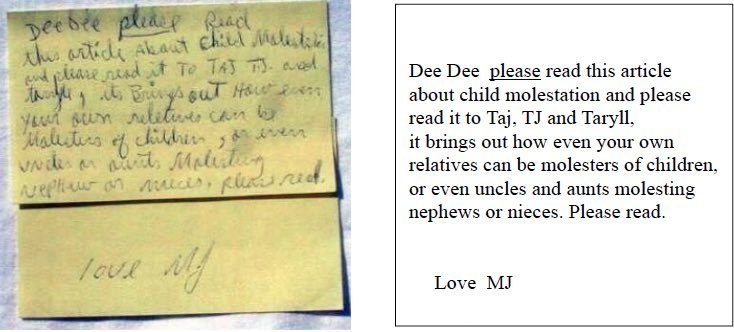 Dee Dee please Read
this article About child Molestation
and please read it To TAJ TJ. and
taryll, its Brings out How even
your own relatives can be
Molesters of children, or even
uncles or aunts Molesting
nephew or nieces. please read.
love MJ
Dee Dee please read this article
about child molestation and please
read it to Taj, TJ and Taryll,
it brings out how even your own
relatives can be molesters of children,
or even uncles and aunts molesting
nephews or nieces. Please read.
Love MJ